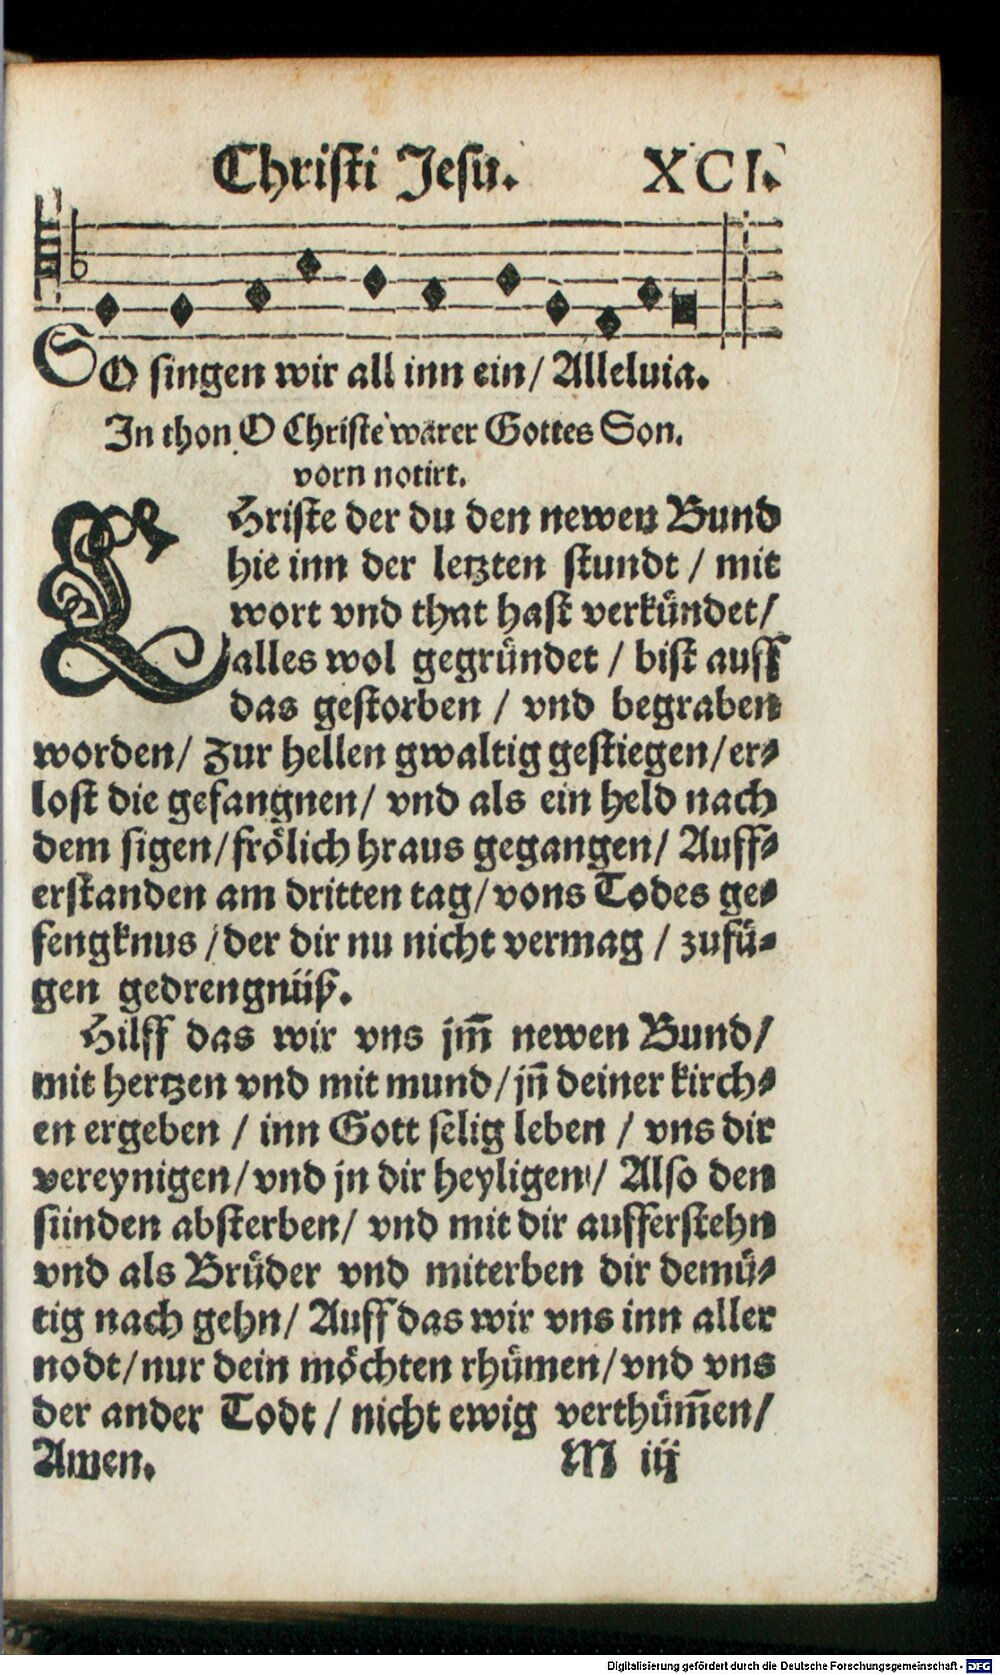 Christi Jesu. XCI.
SO singen wir all inn ein/ Alleluia.
In thon O Christe warer Gottes Son.
vorn notirt.
CHriste der du den newen Bund
hie inn der letzten stundt / mit
wort vnd that hast verkündet/
alles wol gegründet / bist auff
das gestorben / vnd begraben
worden/ Zur hellen gwaltig gestiegen/er⸗
lost die gefangnen/ vnd als ein held nach
dem sigen/frölich hraus gegangen/ Auff⸗
erstanden am dritten tag/vons Todes ge⸗
fengknus /der dir nu nicht vermag / zufü⸗
gen gedrengnüß.
Hilff das wir vns jm̅ newen Bund/
mit hertzen vnd mit mund/jn̅ deiner kirch⸗
en ergeben / inn Gott selig leben / vns dir
vereynigen/vnd jn dir heyligen/ Also den
sünden absterben/ vnd mit dir aufferstehn
vnd als Brüder vnd miterben dir demü⸗
tig nach gehn/ Auff das wir vns inn aller
nodt/nur dein möchten rhümen/vnd vns
der ander Todt / nicht ewig verthüm̅en/
Amen. M iij
Digitalisierung gefördert durch die Deutsche Forschungsgemeinschaft - DFG